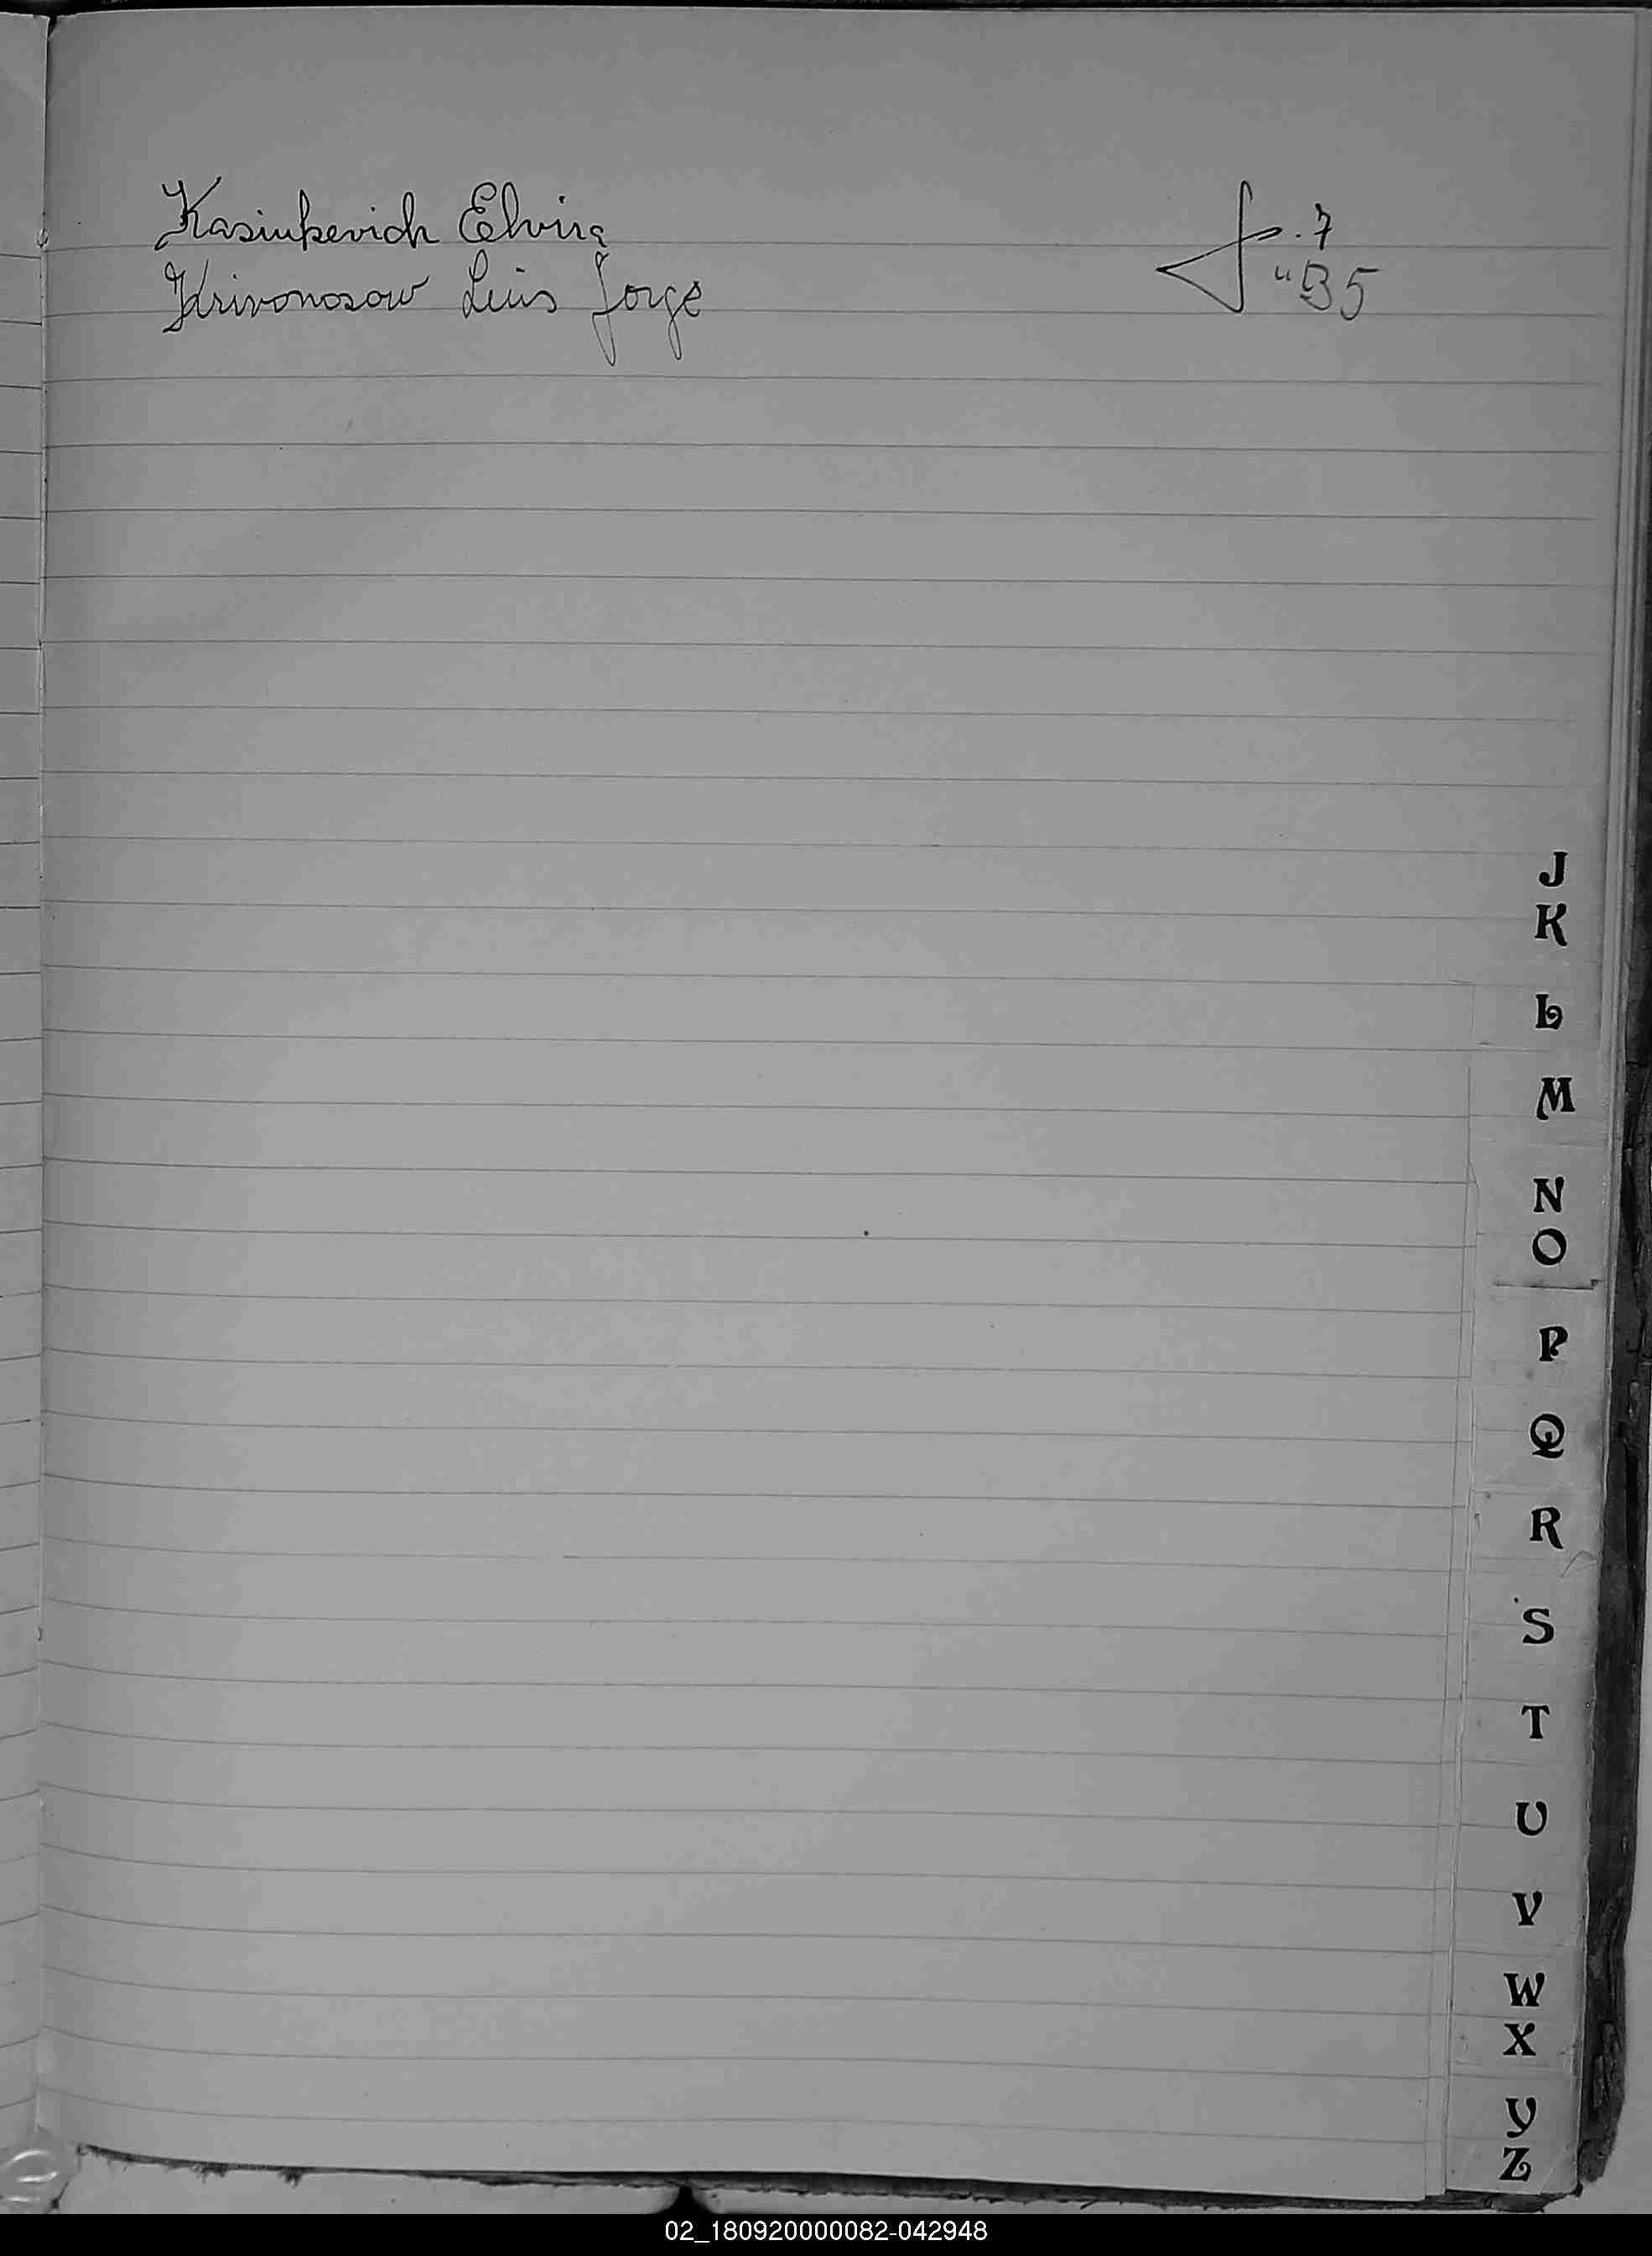 Kasiukevich Elvira f. 7
Krivonosow Luis Jorge " 35
J
K
L
M
N
O
P
Q
R
S
T
U
V
W
X
Y
Z
02_180920000082-042948